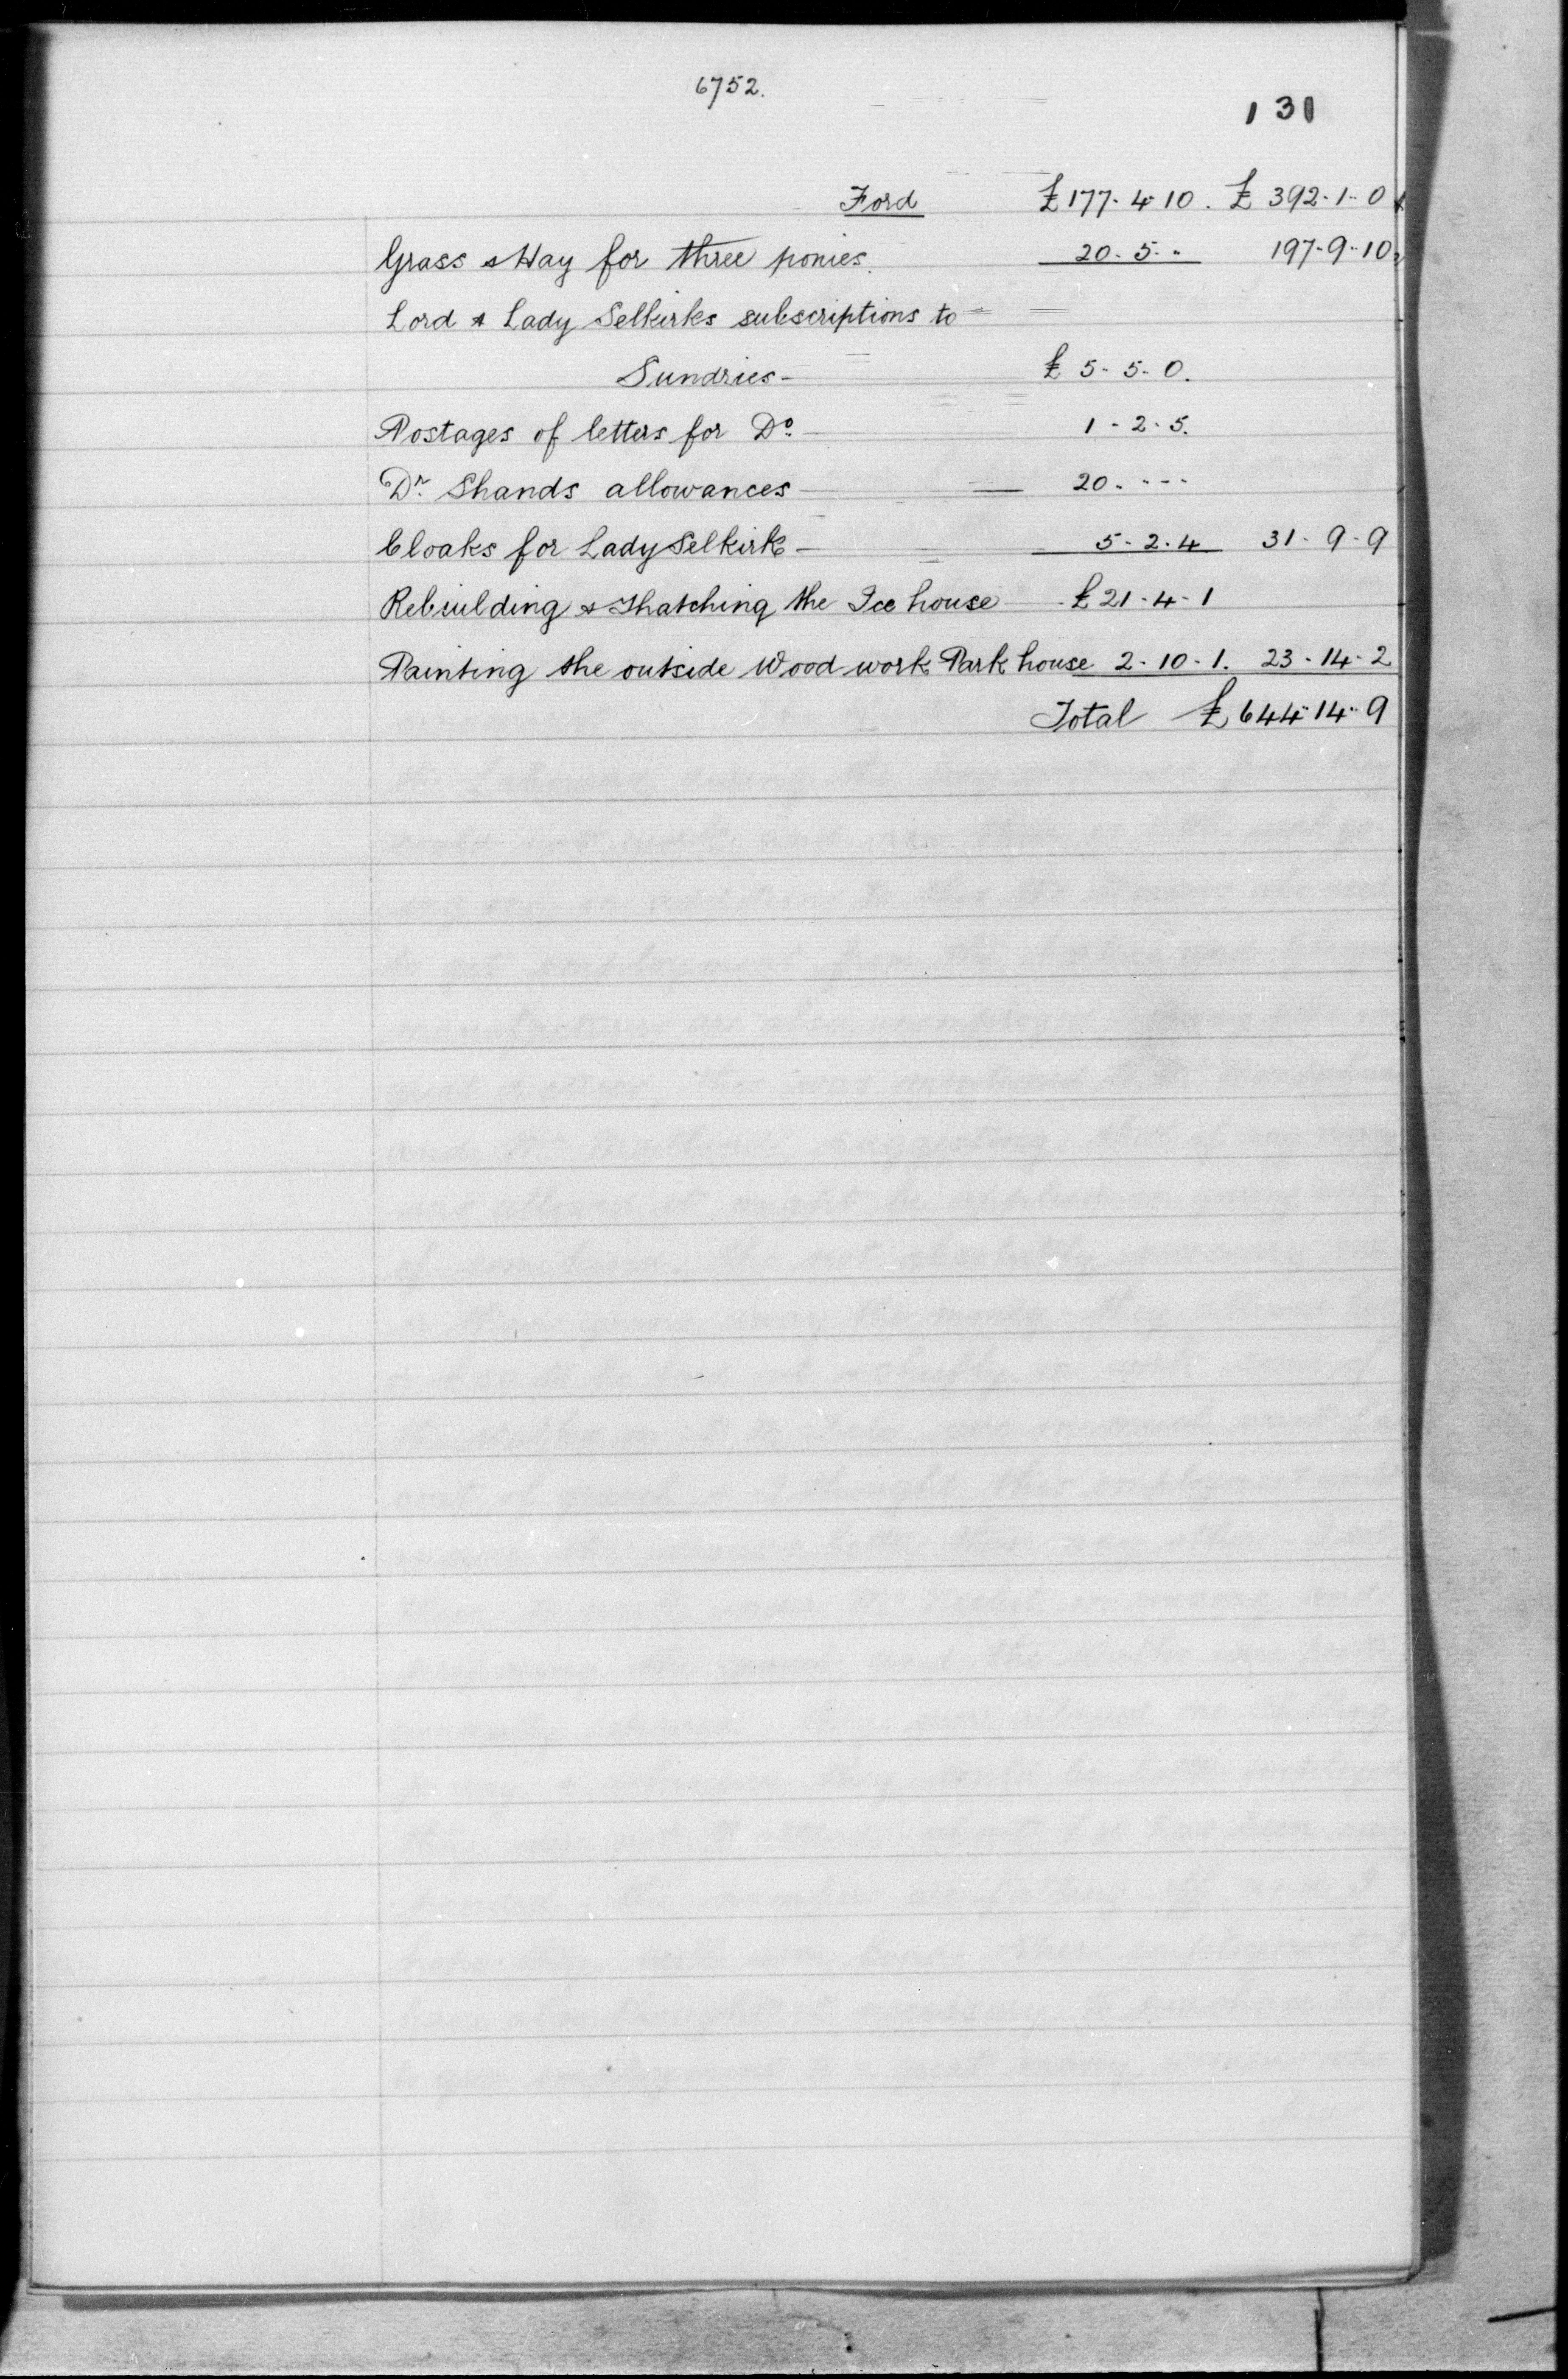 6752.
131
Ford £177-4-10. £392-1-0
Grass & Hay for three ponies. 20-5-" 197-9-10
Lord & Lady Selkirks subscriptions to
Sundries- £5-5-0.
Postages of letters for Do. 1-2-5.
Dr. Shands allowances 20.---
Cloaks for Lady Selkirk- 5-2-4 31-9-9
Rebuilding & Thatching the Ice house £21-4-1
Painting the outside Wood work Park house 2-10-1. 23-14-2
Total £644-14-9